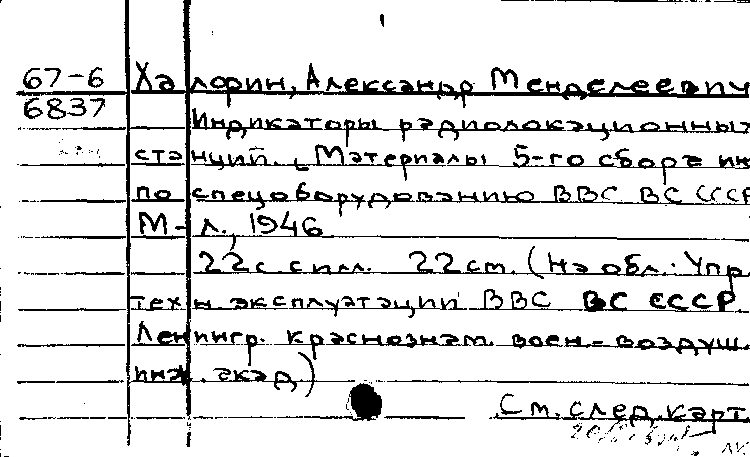 67-6
6837
Халфин, Александр Менделеевич
Индикаторы радиолокационных
станций. Материалы 5-го сбора ин
по спецоборудованию ВВС ВС СССР
М-Л., 1946
22с. с илл. 22см. (На обл.: Упр.
техн эксплуатации ВВС ВС СССР.
Ленингр. краснознам. воен.-воздуш.
инж. акад.)
См. след. карт